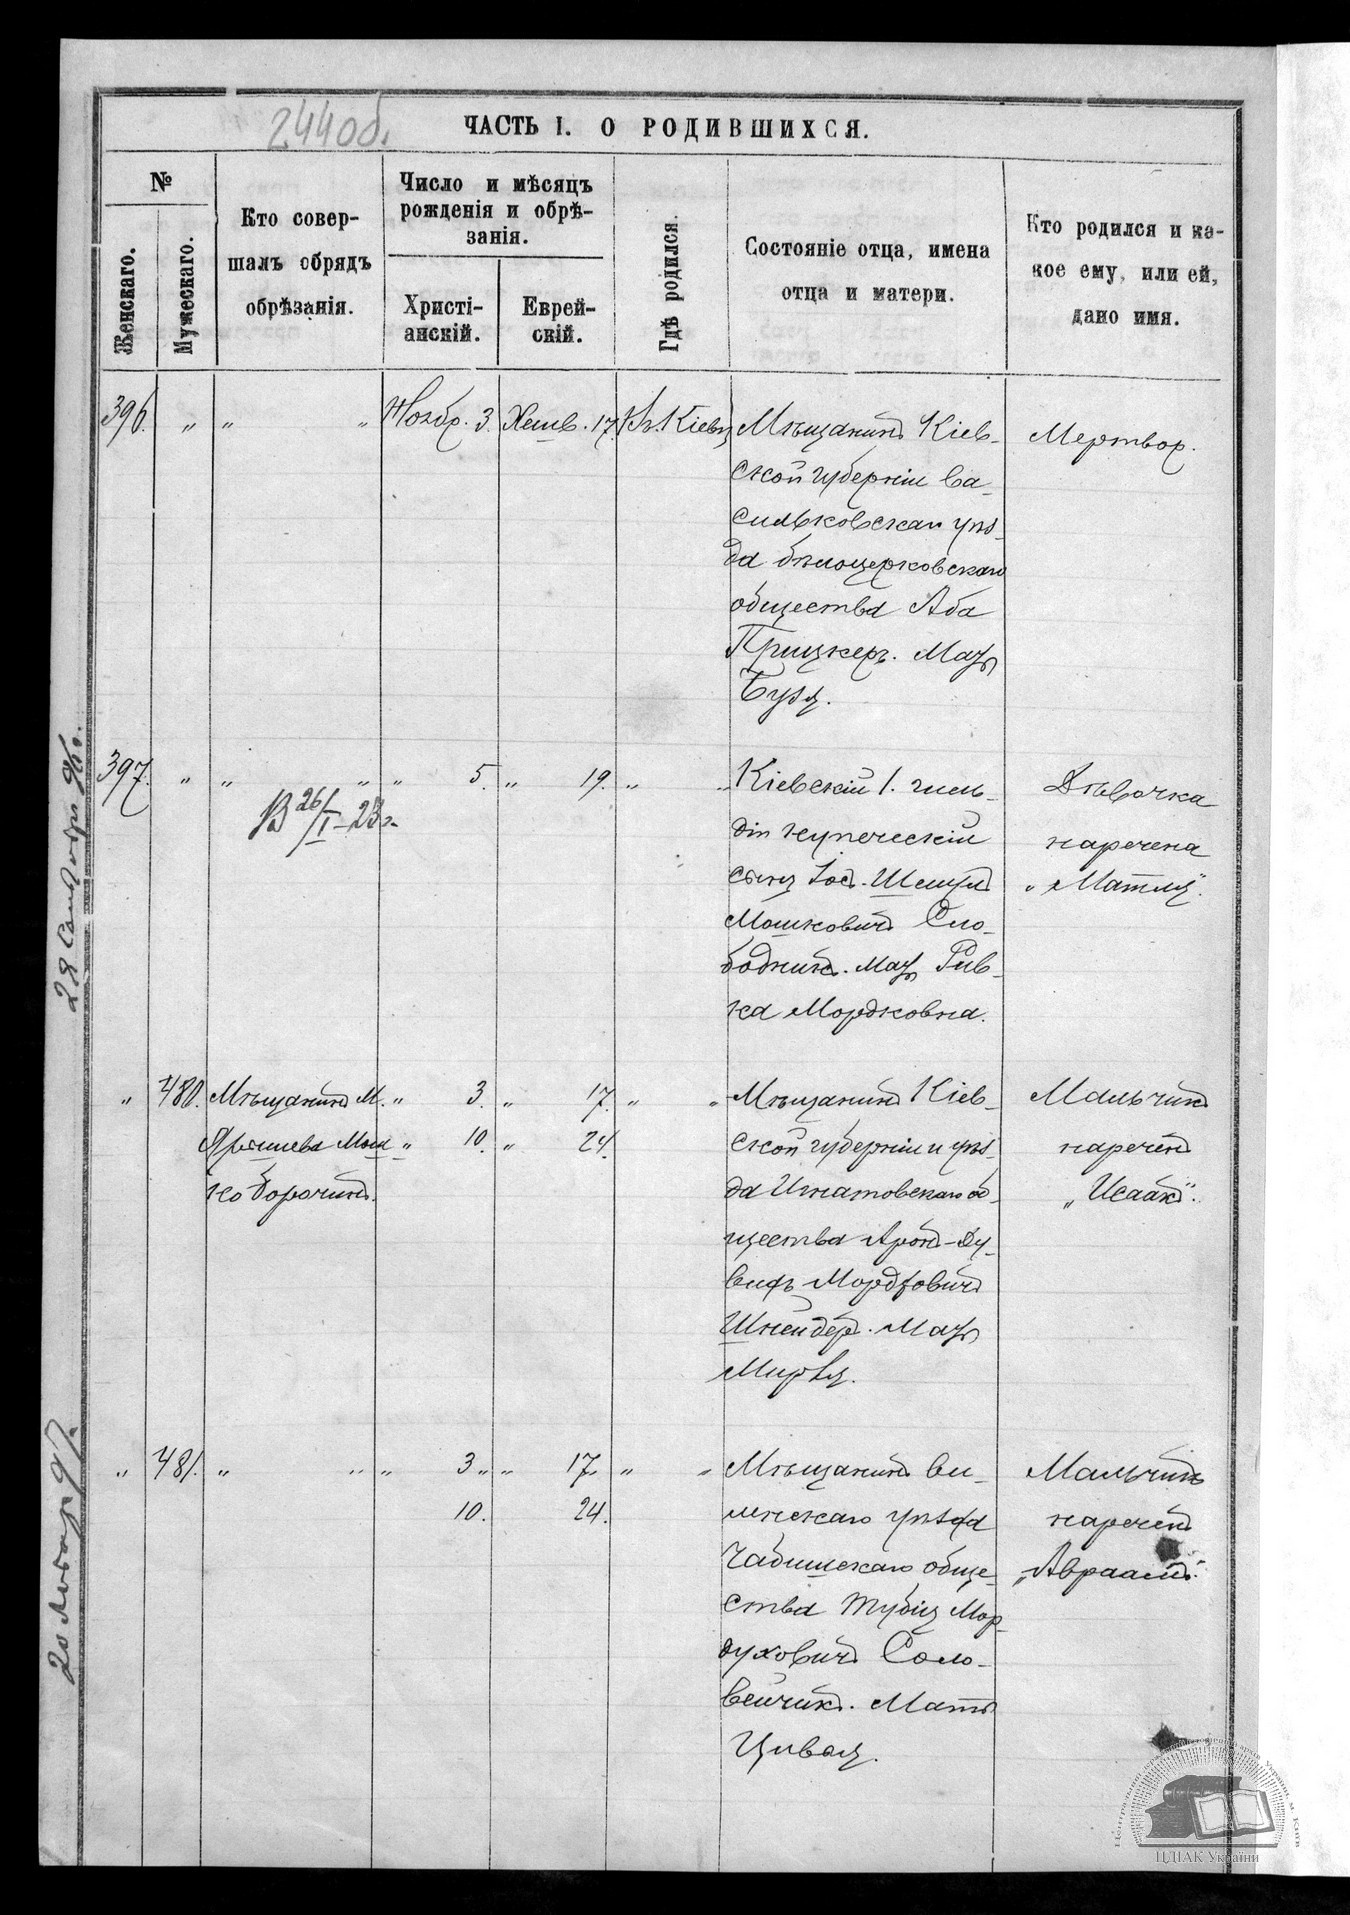 244об.
ЧАСТЬ I. О РОДИВШИХСЯ.
№
Женскаго.
Мужескаго.
Кто совер-
шалъ обрядъ
обрѣзанія.
Число и мѣсяцъ
рожденія и обрѣ-
занія.
Христі-
анскій.
Еврей-
скій.
Гдѣ родился.
Состояніе отца, имена
отца и матери.
Кто родился и ка-
кое ему, или ей,
дано имя.
396. " " " Ноябр. 3. Хешв. 17. Въ Кіевѣ
Мѣщанинъ Кіев-
ской губерніи Ва-
сильковскаго уѣз-
да бѣлоцерковскаго
общества Аба
Прицкеръ. Мать
Бузя.
Мертвор.
397. " " " " 5. " 19. " "
В 26/I-23г.
Кіевскій 1. гиль-
діи купеческій
сынъ Іос. Шмуль
Мошковичъ Сло-
бодникъ. Мать Рив-
ка Мордковна.
Дѣвочка
наречена
"Матля".
" 480. Мѣщанинъ М. " 3. " 17. " "
" 10. " 24.
ко Борочинъ.
Мѣщанинъ Кіев-
ской губерніи и уѣз-
да Игнатовскаго об-
щества Аронъ-Ду-
видъ Мордковичъ
Шнейдеръ. Мать
Мирля.
Мальчикъ
нареченъ
"Исаакъ".
" 481. " " " 3. " 17. " "
10. 24.
Мѣщанинъ Ви-
ленскаго уѣзда
общe-
ства Тубія Мор-
духовичъ Соло-
вейчикъ. Мать
Цивья.
Мальчикъ
нареченъ
"Авраамъ".
ЦДІАК України